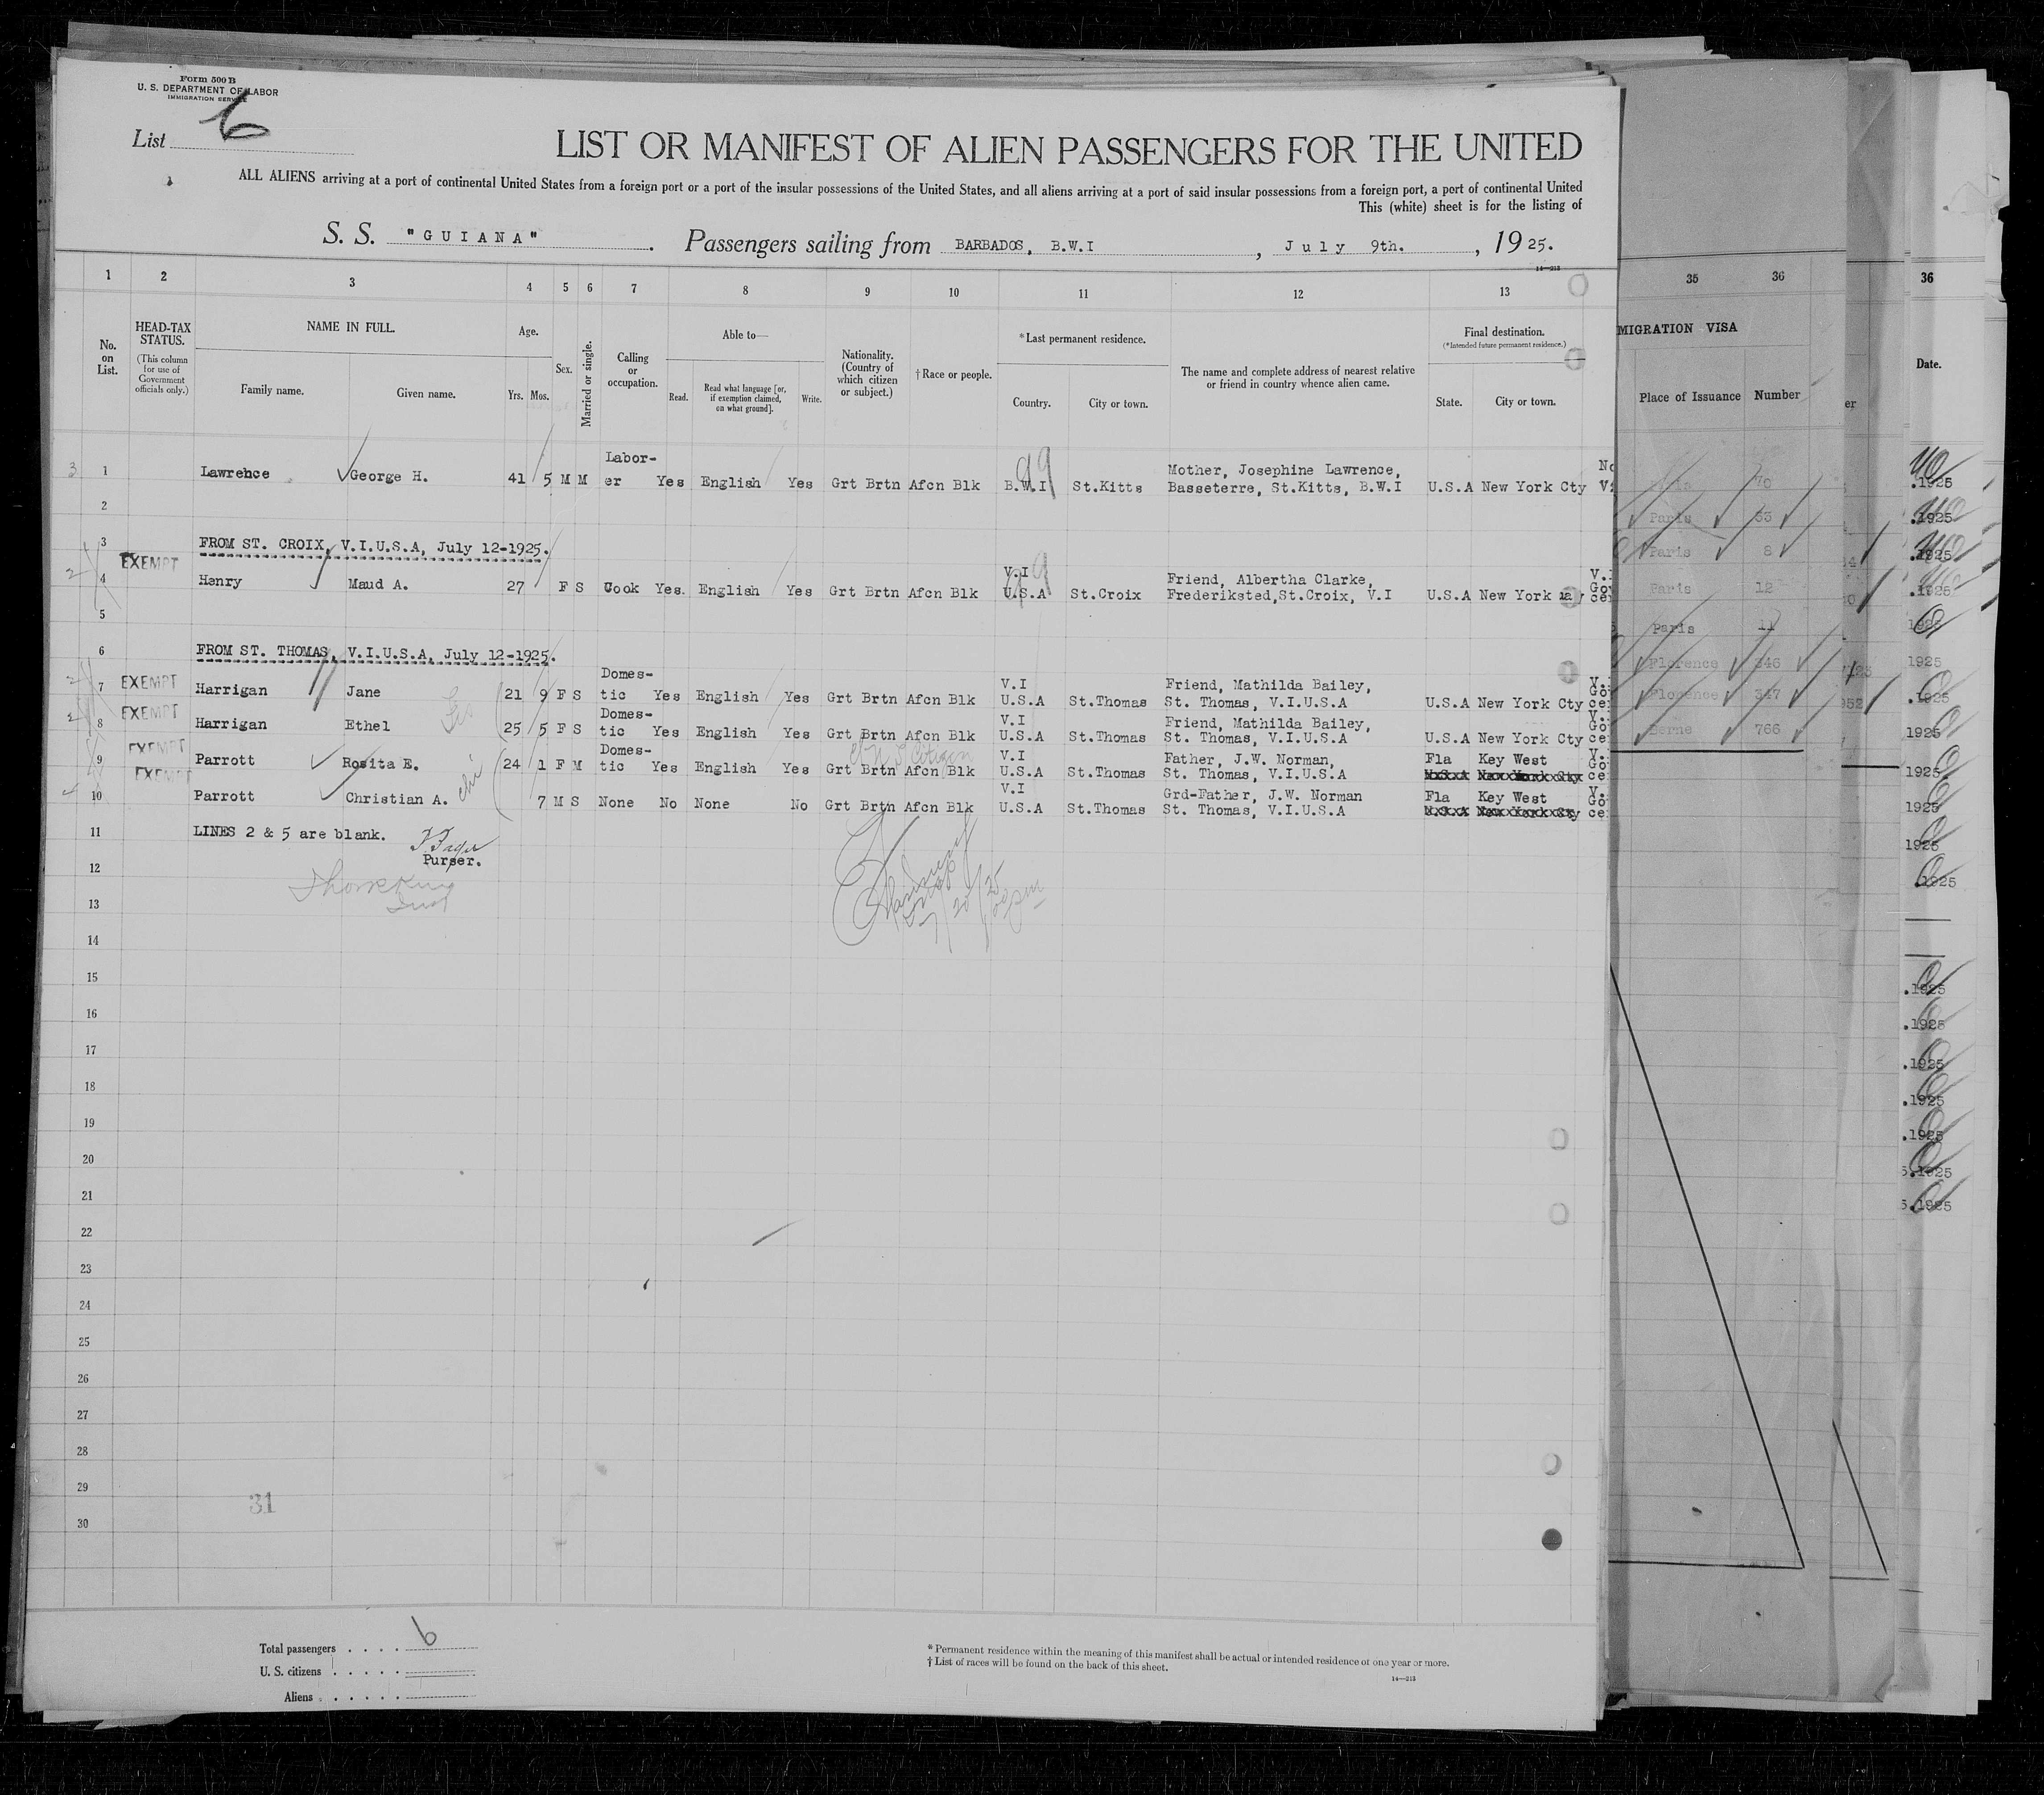 Form 500 B
U. S. DEPARTMENT OF LABOR
IMMIGRATION SERVICE
List 6
LIST OR MANIFEST OF ALIEN PASSENGERS FOR THE UNITED
ALL ALIENS arriving at a port of continental United States from a foreign port or a port of the insular possessions of the United States, and all aliens arriving at a port of said insular possessions from a foreign port, a port of continental United
This (white) sheet is for the listing of
S. S. "GUIANA" . Passengers sailing from BARBADOS, B.W.I , July 9th. , 1925.
14—213
1 2 3 4 5 6 7 8 9 10 11 12 13
No. on List.
HEAD-TAX STATUS.
(This column for use of Government officials only.)
NAME IN FULL.
Family name. Given name.
Age.
Yrs. Mos.
Sex.
Married or single.
Calling or occupation.
Able to—
Read. Read what language [or, if exemption claimed, on what ground]. Write.
Nationality. (Country of which citizen or subject.)
†Race or people.
*Last permanent residence.
Country. City or town.
The name and complete address of nearest relative or friend in country whence alien came.
Final destination.
(*Intended future permanent residence.)
State. City or town.
35 36
MIGRATION VISA
Place of Issuance Number
36
Date.
er
Labor-
Mother, Josephine Lawrence,
3 1 Lawrence George H. 41 5 M M er Yes English Yes Grt Brtn Afcn Blk B.W.I St.Kitts Basseterre, St.Kitts, B.W.I U.S.A New York Cty
99
2
3 FROM ST. CROIX, V.I.U.S.A, July 12-1925.
EXEMPT
V.I Friend, Albertha Clarke,
2 4 Henry Maud A. 27 F S Cook Yes. English Yes Grt Brtn Afcn Blk U.S.A St.Croix Frederiksted,St.Croix, V.I U.S.A New York
99
5
6 FROM ST. THOMAS, V.I.U.S.A, July 12-1925.
Domes- V.I Friend, Mathilda Bailey,
7 EXEMPT Harrigan Jane 21 9 F S tic Yes English Yes Grt Brtn Afcn Blk U.S.A St.Thomas St. Thomas, V.I.U.S.A U.S.A New York Cty
Domes- V.I Friend, Mathilda Bailey,
8 EXEMPT Harrigan Ethel 25 5 F S tic Yes English Yes Grt Brtn Afcn Blk U.S.A St.Thomas St. Thomas, V.I.U.S.A U.S.A New York Cty
Domes- V.I Father, J.W. Norman, Fla Key West
9 EXEMPT Parrott Rosita E. 24 1 F M tic Yes English Yes Grt Brtn Afcn Blk U.S.A St.Thomas St. Thomas, V.I.U.S.A
V.I Grd-Father, J.W. Norman Fla Key West
10 EXEMPT Parrott Christian A. 7 M S None No None No Grt Brtn Afcn Blk U.S.A St.Thomas St. Thomas, V.I.U.S.A
11 LINES 2 & 5 are blank.
Purser.
12
13
14
15
16
17
18
19
20
21
22
23
24
25
26
27
28
29
30
31
Paris 53
Paris 8
Paris 12
Paris 11
Florence 346
Florence 347
Berne 766
Total passengers 6
U. S. citizens
Aliens
* Permanent residence within the meaning of this manifest shall be actual or intended residence of one year or more.
† List of races will be found on the back of this sheet.
14—213